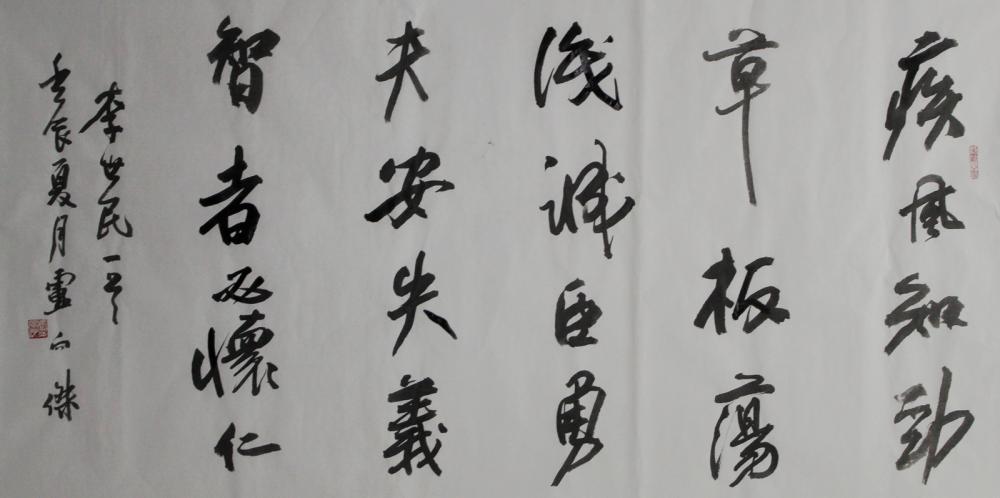 疾風知勁
草板蕩
識誠臣勇
夫安失義
智者必懷仁
李世民
壬辰夏月